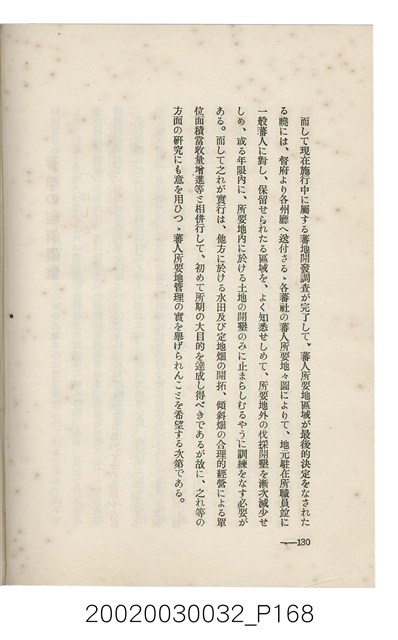 而して現在施行中に屬する蕃地開發調査が完了して、蕃人所要地區域が最後的決定をなされた
る曉には、督府より各州廳へ送付さるゝ各蕃社の蕃人所要地々圖によりて、地元駐在所職員並に
一般蕃人に對し、保留せられたる區域を、よく知悉せしめて、所要地外の伐採開墾を漸次減少せ
しめ、或る年限內に、所要地內に於ける土地の開墾のみに止まらしむるやうに訓練をなす必要が
ある。而して之れが實行は、他方に於ける水田及び定地畑の開拓、傾斜畑の合理的經營による單
位面積當收量增進等と相併行して、初めて所期の大目的を達成し得べきであるが故に、之れ等の
方面の硏究にも意を用ひつゝ蕃人所要地管理の實を擧げられんことを希望する次第である。
—130
20020030032_P168